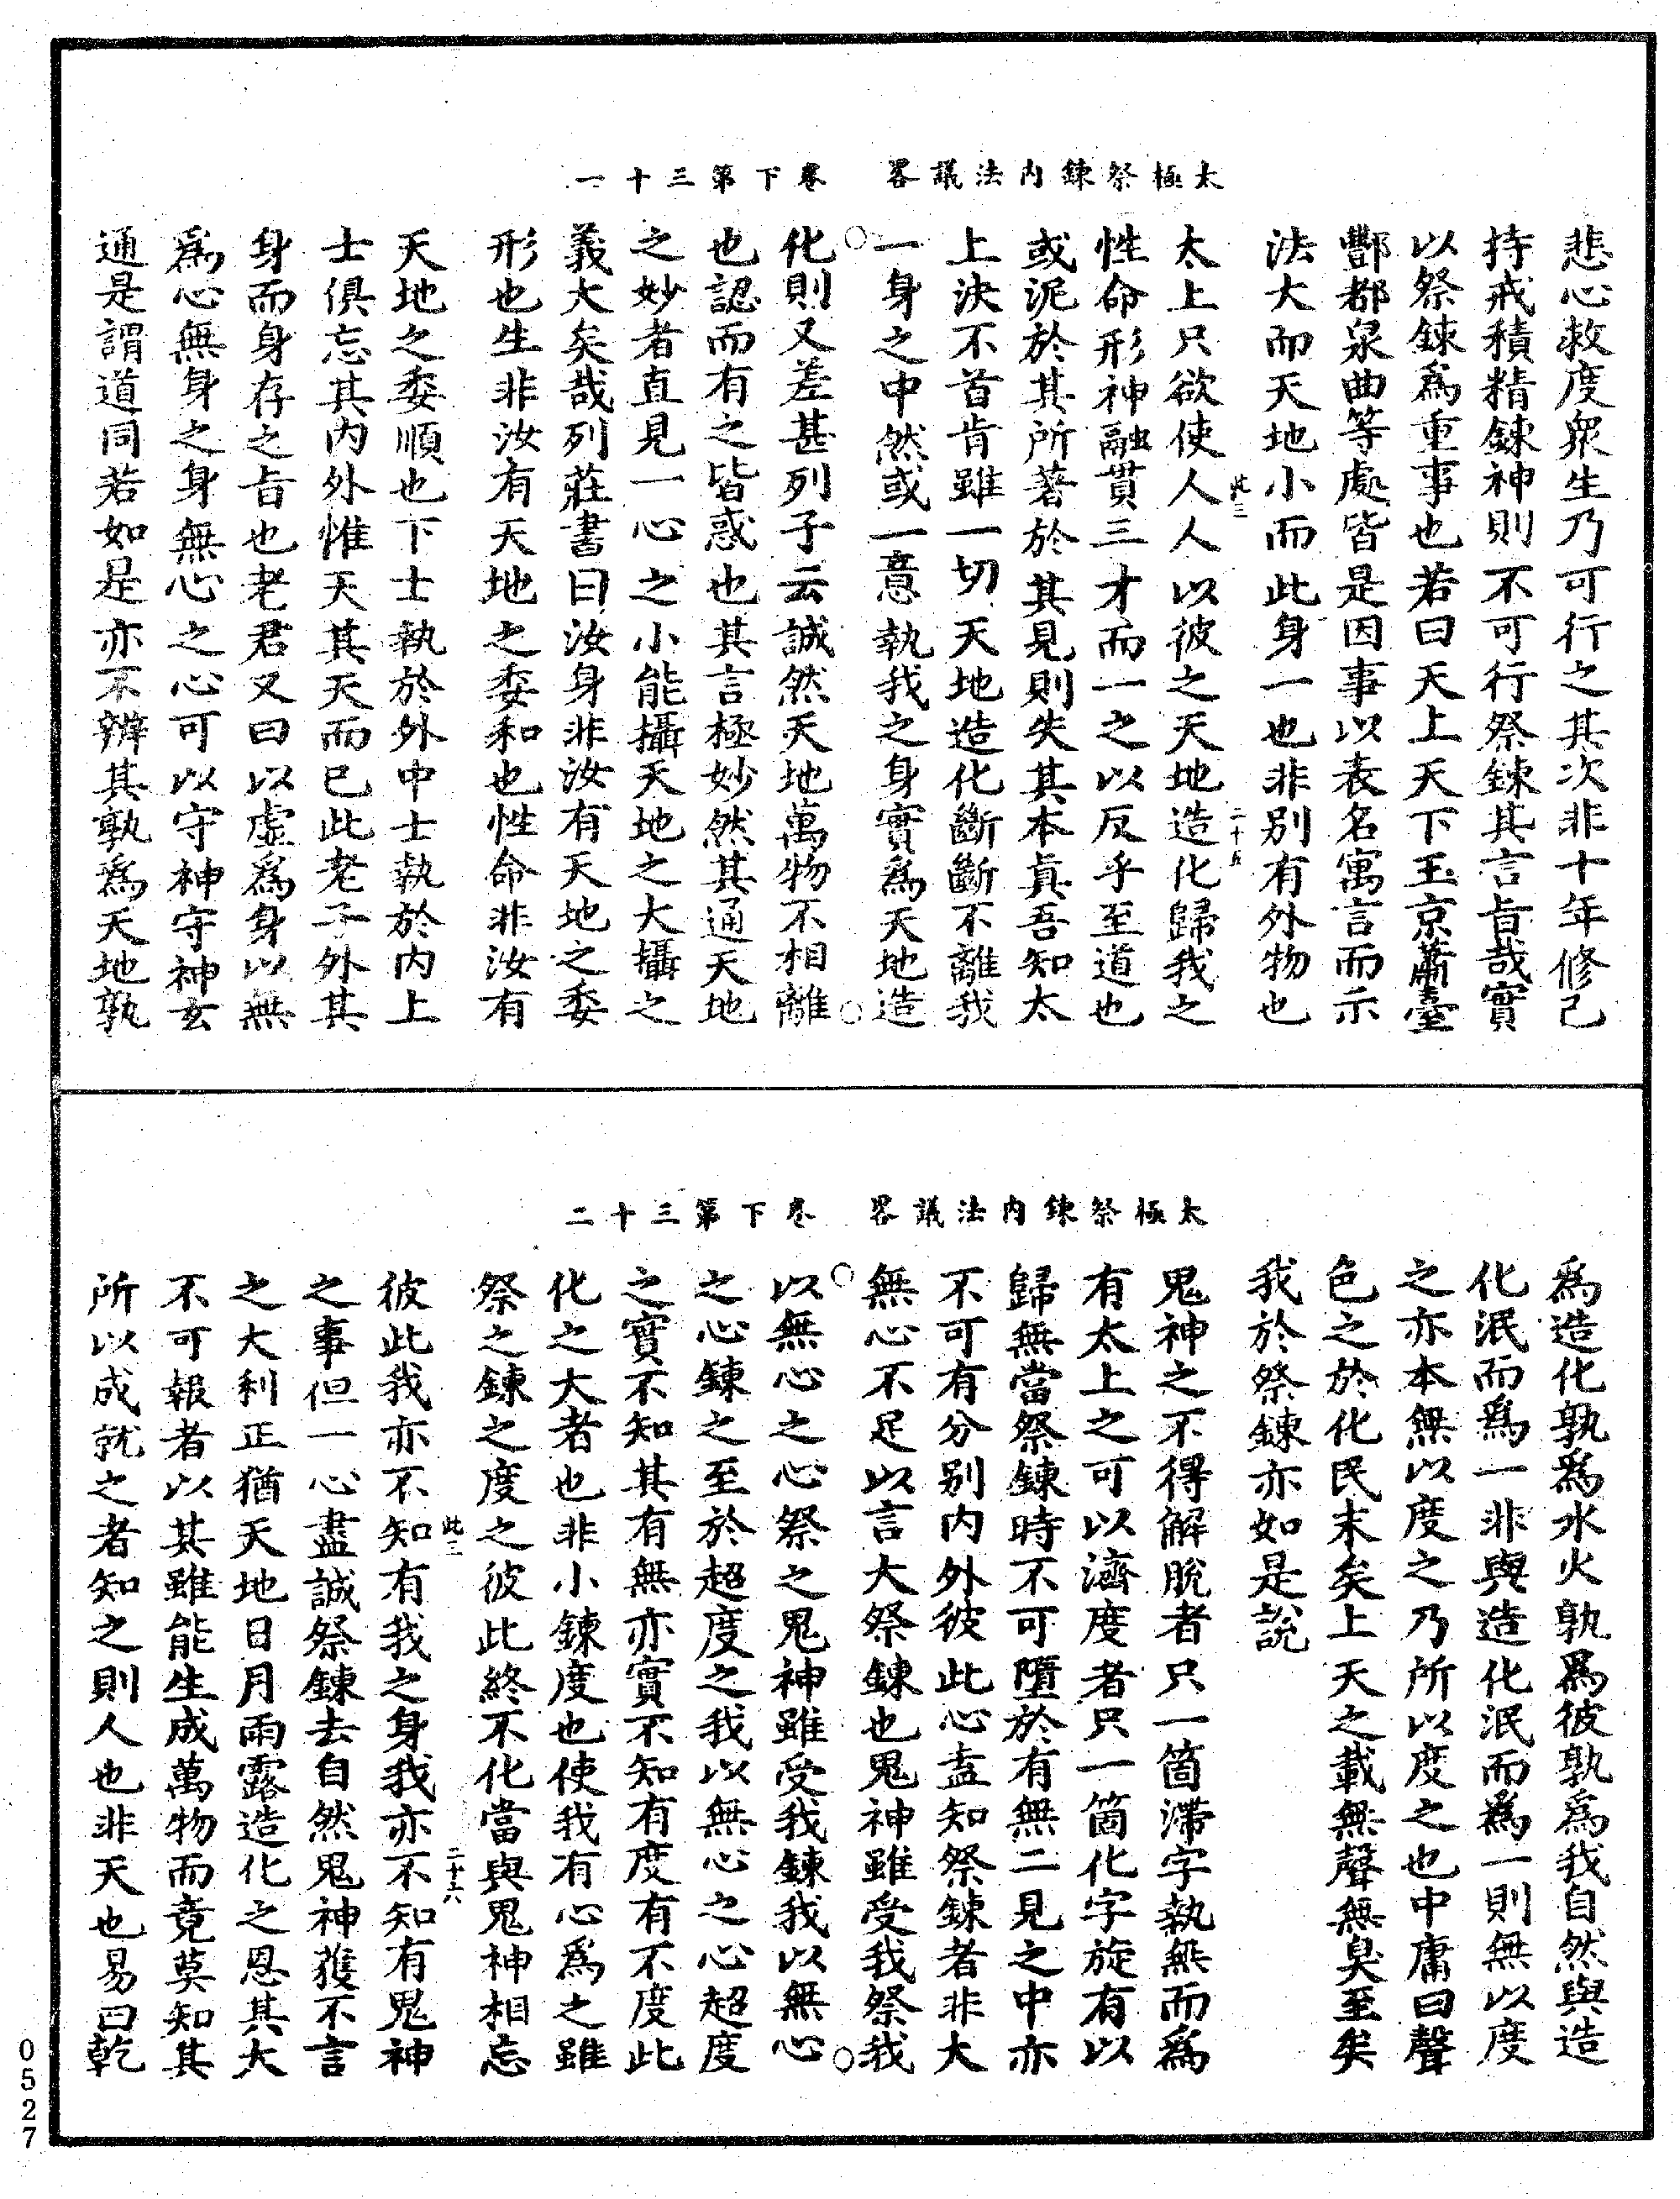 悲心救度衆生乃可行之其次非十年修己
持戒積精鍊神則不可行祭鍊其言旨哉實
以祭鍊爲重事也若曰天上天下玉京蕭臺
酆都泉曲等處皆是因事以表名寓言而示
法大而天地小而此身一也非別有外物也
此三
二十五
太上只欲使人人以彼之天地造化歸我之
性命形神融貫三才而一之以反乎至道也
或泥於其所著於其見則失其本眞吾知太
上決不首肯雖一切天地造化斷斷不離我
一身之中然或一意執我之身實爲天地造
太極祭鍊內法議畧　卷下第三十一
化則又差甚列子云誠然天地萬物不相離
也認而有之皆惑也其言極妙然其通天地
之妙者直見一心之小能攝天地之大攝之
義大矣哉列莊書曰汝身非汝有天地之委
形也生非汝有天地之委和也性命非汝有
天地之委順也下士執於外中士執於內上
士俱忘其內外惟天其天而已此老子外其
身而身存之旨也老君又曰以虛爲身以無
爲心無身之身無心之心可以守神守神玄
通是謂道同若如是亦不辨其孰爲天地孰
爲造化孰爲水火孰爲彼孰爲我自然與造
化泯而爲一非與造化泯而爲一則無以度
之亦本無以度之乃所以度之也中庸曰聲
色之於化民末矣上天之載無聲無臭至矣
我於祭鍊亦如是說
鬼神之不得解脫者只一箇滯字執無而爲
有太上之可以濟度者只一箇化字旋有以
歸無當祭鍊時不可墮於有無二見之中亦
不可有分別內外彼此心盍知祭鍊者非大
無心不足以言大祭鍊也鬼神雖受我祭我
太極祭鍊內法議畧　卷下第三十二
以無心之心祭之鬼神雖受我鍊我以無心
之心鍊之至於超度之我以無心之心超度
之實不知其有無亦實不知有度有不度此
化之大者也非小鍊度也使我有心爲之雖
祭之鍊之度之彼此終不化當與鬼神相忘
此三
二十六
彼此我亦不知有我之身我亦不知有鬼神
之事但一心盡誠祭鍊去自然鬼神獲不言
之大利正猶天地日月雨露造化之恩其大
不可報者以其雖能生成萬物而竟莫知其
所以成就之者知之則人也非天也易曰乾
0527